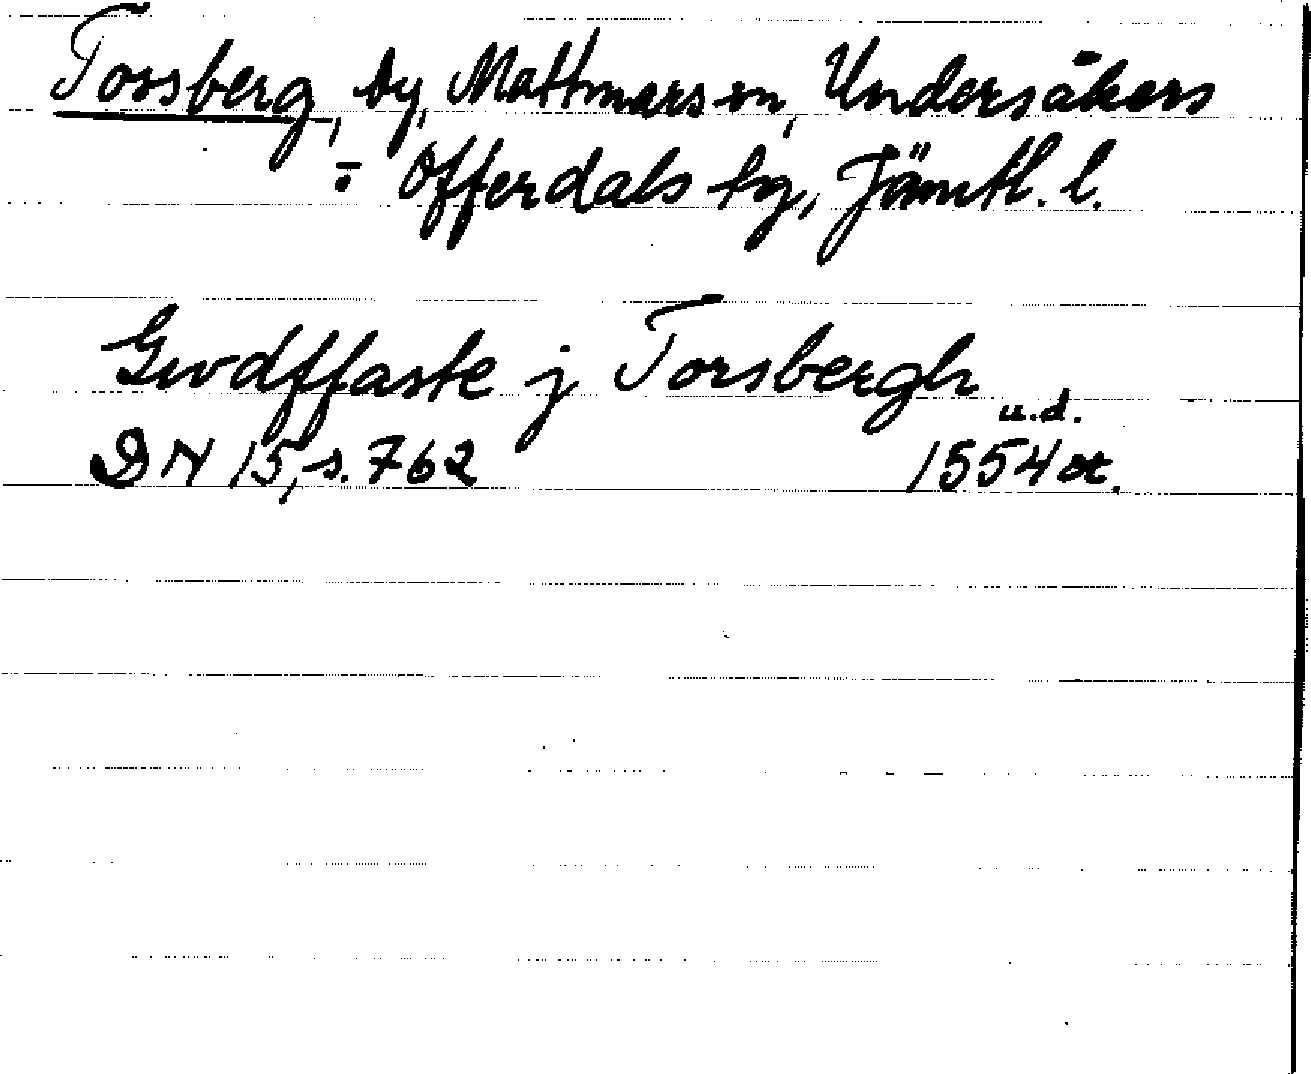 Torsberg, by, Mattmars sn, Undersåkers
= Offerdals tg, Jämtl. l.
Gwdffaste j Torsbergh
u.d.
DN 15, s. 762 1554 or.